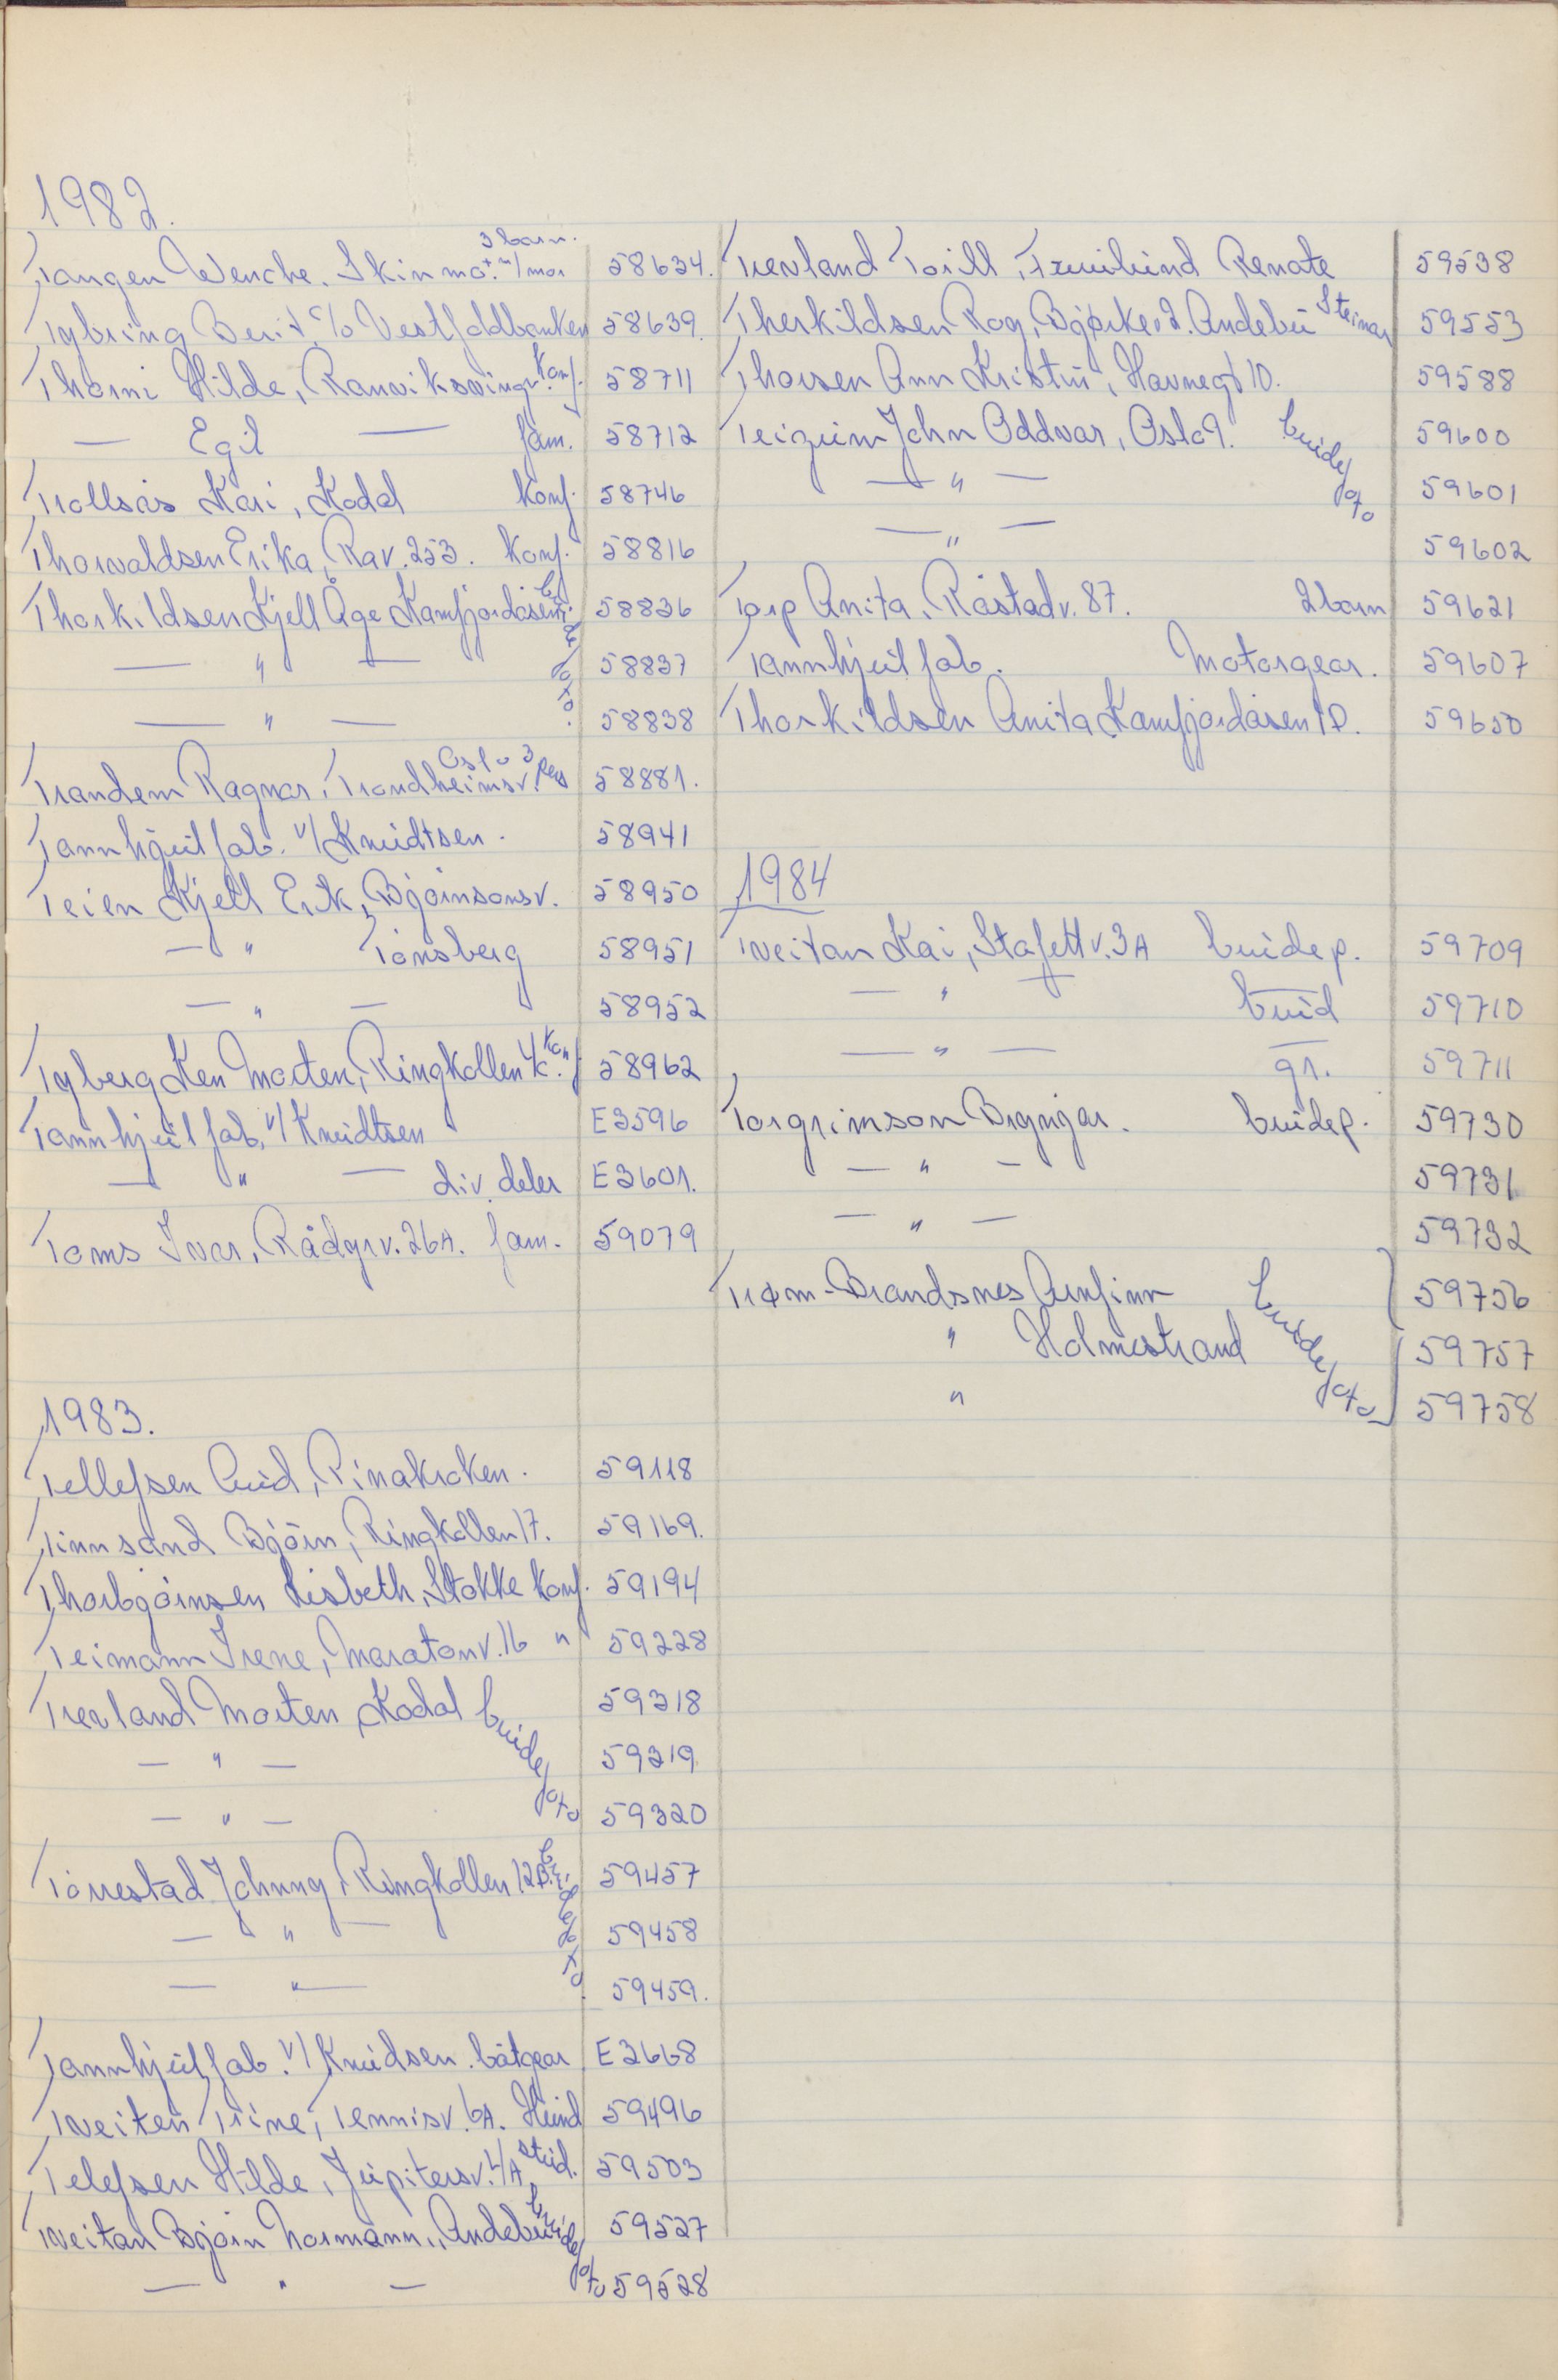 1982.
Tangen Wenche. Skinmo. + m/mor 3 barn. 58634.
Tybring Berit, c/o Vestfoldbanken 58639.
Thorni Hilde, Ranviksvingen Konf. 58711
— Egil — fam. 58712
Trollsås Kari, Kodal konf. 58746
Thorvaldsen Erika, Rav. 253. konf. 58816
Thorkildsen Kjell Åge Kamfjordåsen brudefoto. 58836
— " — 58837
— " — 58838
Trandem Ragnar, Trondheimsv. Oslo 3 Rep 58881.
Tannhjulfab. v/ Knudtsen. 58941
Teien Kjell Erik, Bjørnsonsv. 58950
— " Tønsberg 58951
— " — 58952
Tyberg Ken Morten, Ringkollen 4c. Konf 58962
Tannhjulfab. v/ Knudtsen E3596
— " — div. deler E3601.
Toms Ivar, Rådyrv. 26A. fam. 59079
1983.
Tellefsen Aud, Rinakroken. 59118
Tinnsand Bjørn, Ringkollen 17. 59169.
Thorbjørnsen Lisbeth, Stokke konf. 59194
Teimann Irene, Maratonv. 16 " 59228
Trevland Morten Kodal brudefoto 59318
— " — 59319
— " — 59320
Tørrestad Johnny, Ringkollen 12B. brudefoto. 59457
— " — 59458
— " — 59459.
Tannhjulfab. v/ Knudsen. båtgear E3668
Tveiten Trine, Tennisv. 6A. Hund 59496
Telefsen Hilde, Jupitersv. 4A, stud. 59503
Tveitan Bjørn Normann, Andebu brudefoto 59527
— " — 59528
Trevland Torill, Renate 59538
Therkildsen Roy, Bjørkev 2. Andebu Steinar 59553
Thorsen Ann Kristin, Havnegt 10. 59588
Teigum John Oddvar, Oslo 9. brudefoto 59600
— " — 59601
— " — 59602
Torp Anita, Råstadv. 87. 2 barn 59621
Tannhjulfab. Motorgear. 59607
Thorkildsen Anita Kamfjordåsen 10. 59650
1984
Tveitan Kai, Stafettv. 3A brudep. 59709
— " — brud 59710
— " — gr. 59711
Torgrimson Brynjar. brudep. 59730
— " — 59731
— " — 59732
Trøm-Brandsnes Arnfinn brudefoto 59756
" Holmestrand 59757
" 59758